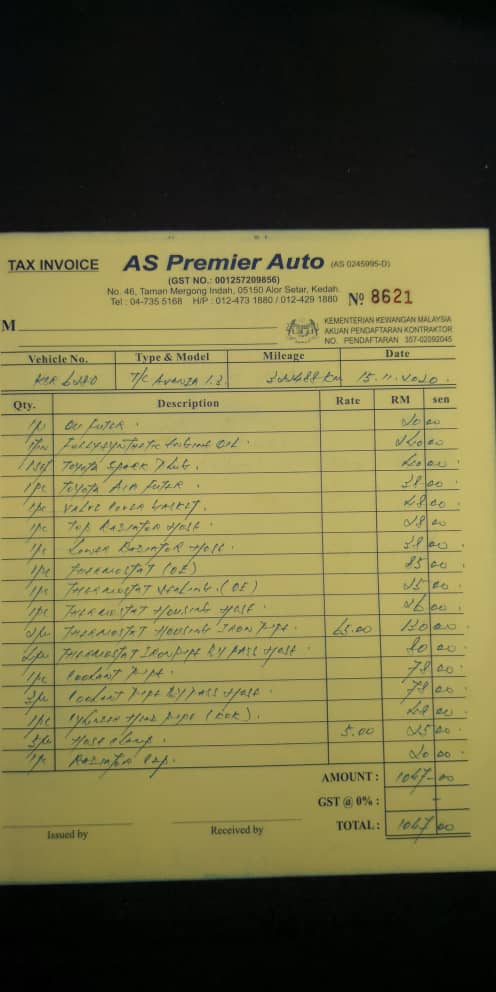 TAX INVOICE AS Premier Auto (AS 0245995-D)
(GST NO.: 001257209856)
No. 46, Taman Mergong Indah, 05150 Alor Setar, Kedah.
Tel : 04-735 5168 H/P : 012-473 1880 / 012-429 1880 Nº 8621
M
KEMENTERIAN KEWANGAN MALAYSIA
AKUAN PENDAFTARAN KONTRAKTOR
NO. PENDAFTARAN 357-02092045
Vehicle No. Type & Model Mileage Date
T/C Avanza 1.3. 322488 KM 15.11.2020.
Qty. Description Rate RM sen
1pc Oil Filter. 00
Fully Synthetic Engine Oil. 00
1 set Toyota Spark Plug. 00
1pc Toyota Air Filter. 38 00
1pc Valve Cover Gasket. 48 00
1pc Top Radiator Hose. 00
1pc Lower Radiator Hose. 38 00
1pc Thermostat (OE) 85 00
1pc Thermostat (OE) 25 00
1pc Thermostat Housing Hose. 26 00
2pc Thermostat Housing Iron Pipe. 65.00 130 00
2pc Thermostat Iron Pipe By Pass Hose. 80 00
1pc Coolant Pipe. 78 00
3pc Coolant Pipe By Pass Hose. 78 00
1pc Cylinder Head Pipe 00
5pc Hose Clamp. 5.00 25 00
1pc Radiator Cap. 20 00
AMOUNT : 1067-00
GST @ 0% : -
TOTAL : 1067 00
Issued by Received by